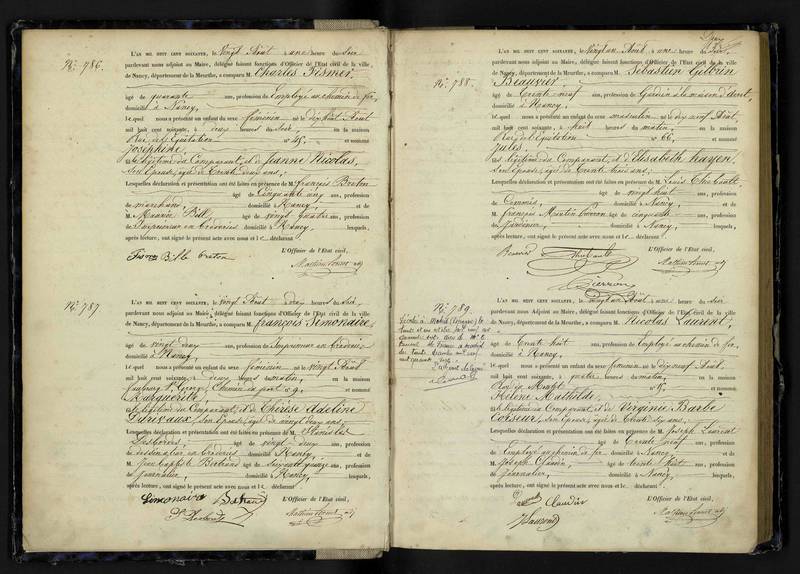 N° 786.
L'AN MIL HUIT CENT SOIXANTE, le vingt Août à une heure du Soir
pardevant nous adjoint au Maire, délégué faisant fonctions d'Officier de l'Etat civil de la ville
de Nancy, département de la Meurthe, a comparu M. Charles Fismer,
âgé de quarante ans, profession de Employé au chemin de fer,
domicilié à Nancy,
lequel nous a présenté un enfant du sexe féminin né le dix huit Août
mil huit cent soixante, à deux heures du Soir, en la maison
Rue de l'Equitation n° 45, et nommé
Joséphine
fille légitime du Comparant, et de Jeanne Nicolas,
Son épouse, âgée de Trente deux ans,
Lesquelles déclaration et présentation ont été faites en présence de M. François Breton
âgé de Cinquante cinq ans, profession
de marchand, domicilié à Nancy, et de
M. Bill âgé de vingt quatre ans, profession
d'Imprimeur en broderies domicilié à Nancy, lesquels,
après lecture, ont signé le présent acte avec nous et le déclarant
L'Officier de l'Etat civil,
Fismer Bill breton
N° 787
L'AN MIL HUIT CENT SOIXANTE, le vingt Août à deux heures du Soir
pardevant nous adjoint au Maire, délégué faisant fonctions d'Officier de l'Etat civil de la ville
de Nancy, département de la Meurthe, a comparu M. François Simonaire
âgé de vingt deux ans, profession de Imprimeur en broderies
domicilié à Nancy,
lequel nous a présenté un enfant du sexe féminin né le vingt Août
mil huit cent soixante, à deux heures du matin, en la maison
faubourg St Georges, Chemin du port n° 9, et nommé
Marguerite,
fille légitime du Comparant, et de Thérèse Adeline
Son épouse, âgée de vingt deux ans,
Lesquelles déclaration et présentation ont été faites en présence de M. Stanislas
âgé de vingt deux ans, profession
de dessinateur en broderies domicilié à Nancy, et de
M. Jean Baptiste Bertrand âgé de Soixante quinze ans, profession
de Journalier, domicilié à Nancy, lesquels,
après lecture, ont signé le présent acte avec nous et le déclarant
L'Officier de l'Etat civil,
Simonaire
N° 788
L'AN MIL HUIT CENT SOIXANTE, le vingt un Août à une heure du Soir.
pardevant nous adjoint au Maire, délégué faisant fonctions d'Officier de l'Etat civil de la ville
de Nancy, département de la Meurthe, a comparu M. Sébastien
âgé de Trente neuf ans, profession de Gardien à la maison d'arrêt,
domicilié à Nancy,
lequel nous a présenté un enfant du sexe masculin né le dix neuf Août,
mil huit cent soixante, à huit heures du matin, en la maison
Rue de l'Equitation n° 66, et nommé
Jules.
fils légitime du Comparant, et d'Elisabeth
Son épouse, âgée de Trente trois ans,
Lesquelles déclaration et présentation ont été faites en présence de M. Louis Thiébault
âgé de vingt huit ans, profession
de Commis, domicilié à Nancy, et de
M. François Martin Pierron âgé de cinquante ans, profession
de Jardinier, domicilié à Nancy, lesquels,
après lecture, ont signé le présent acte avec nous et le déclarant
L'Officier de l'Etat civil,
Thiébault
Pierron
N° 789.
L'AN MIL HUIT CENT SOIXANTE, le vingt un Août à une heure du Soir
pardevant nous adjoint au Maire, délégué faisant fonctions d'Officier de l'Etat civil de la ville
de Nancy, département de la Meurthe, a comparu M. Nicolas Laurent,
âgé de Trente huit ans, profession de Employé au chemin de fer,
domicilié à Nancy,
lequel nous a présenté un enfant du sexe féminin né le dix neuf Août,
mil huit cent soixante, à quatre heures du matin, en la maison
n° 15, et nommé
Hélène Mathilde
fille légitime du Comparant, et de Virginie Barbe
Son épouse, âgée de Trente six ans,
Lesquelles déclaration et présentation ont été faites en présence de M. Joseph Laurent
âgé de Trente neuf ans, profession
de Employé au chemin de fer, domicilié à Nancy, et de
M. Joseph Claudin âgé de Trente huit ans, profession
de Journalier, domicilié à Nancy, lesquels,
après lecture, ont signé le présent acte avec nous et le déclarant
L'Officier de l'Etat civil,
Claudin
Laurent